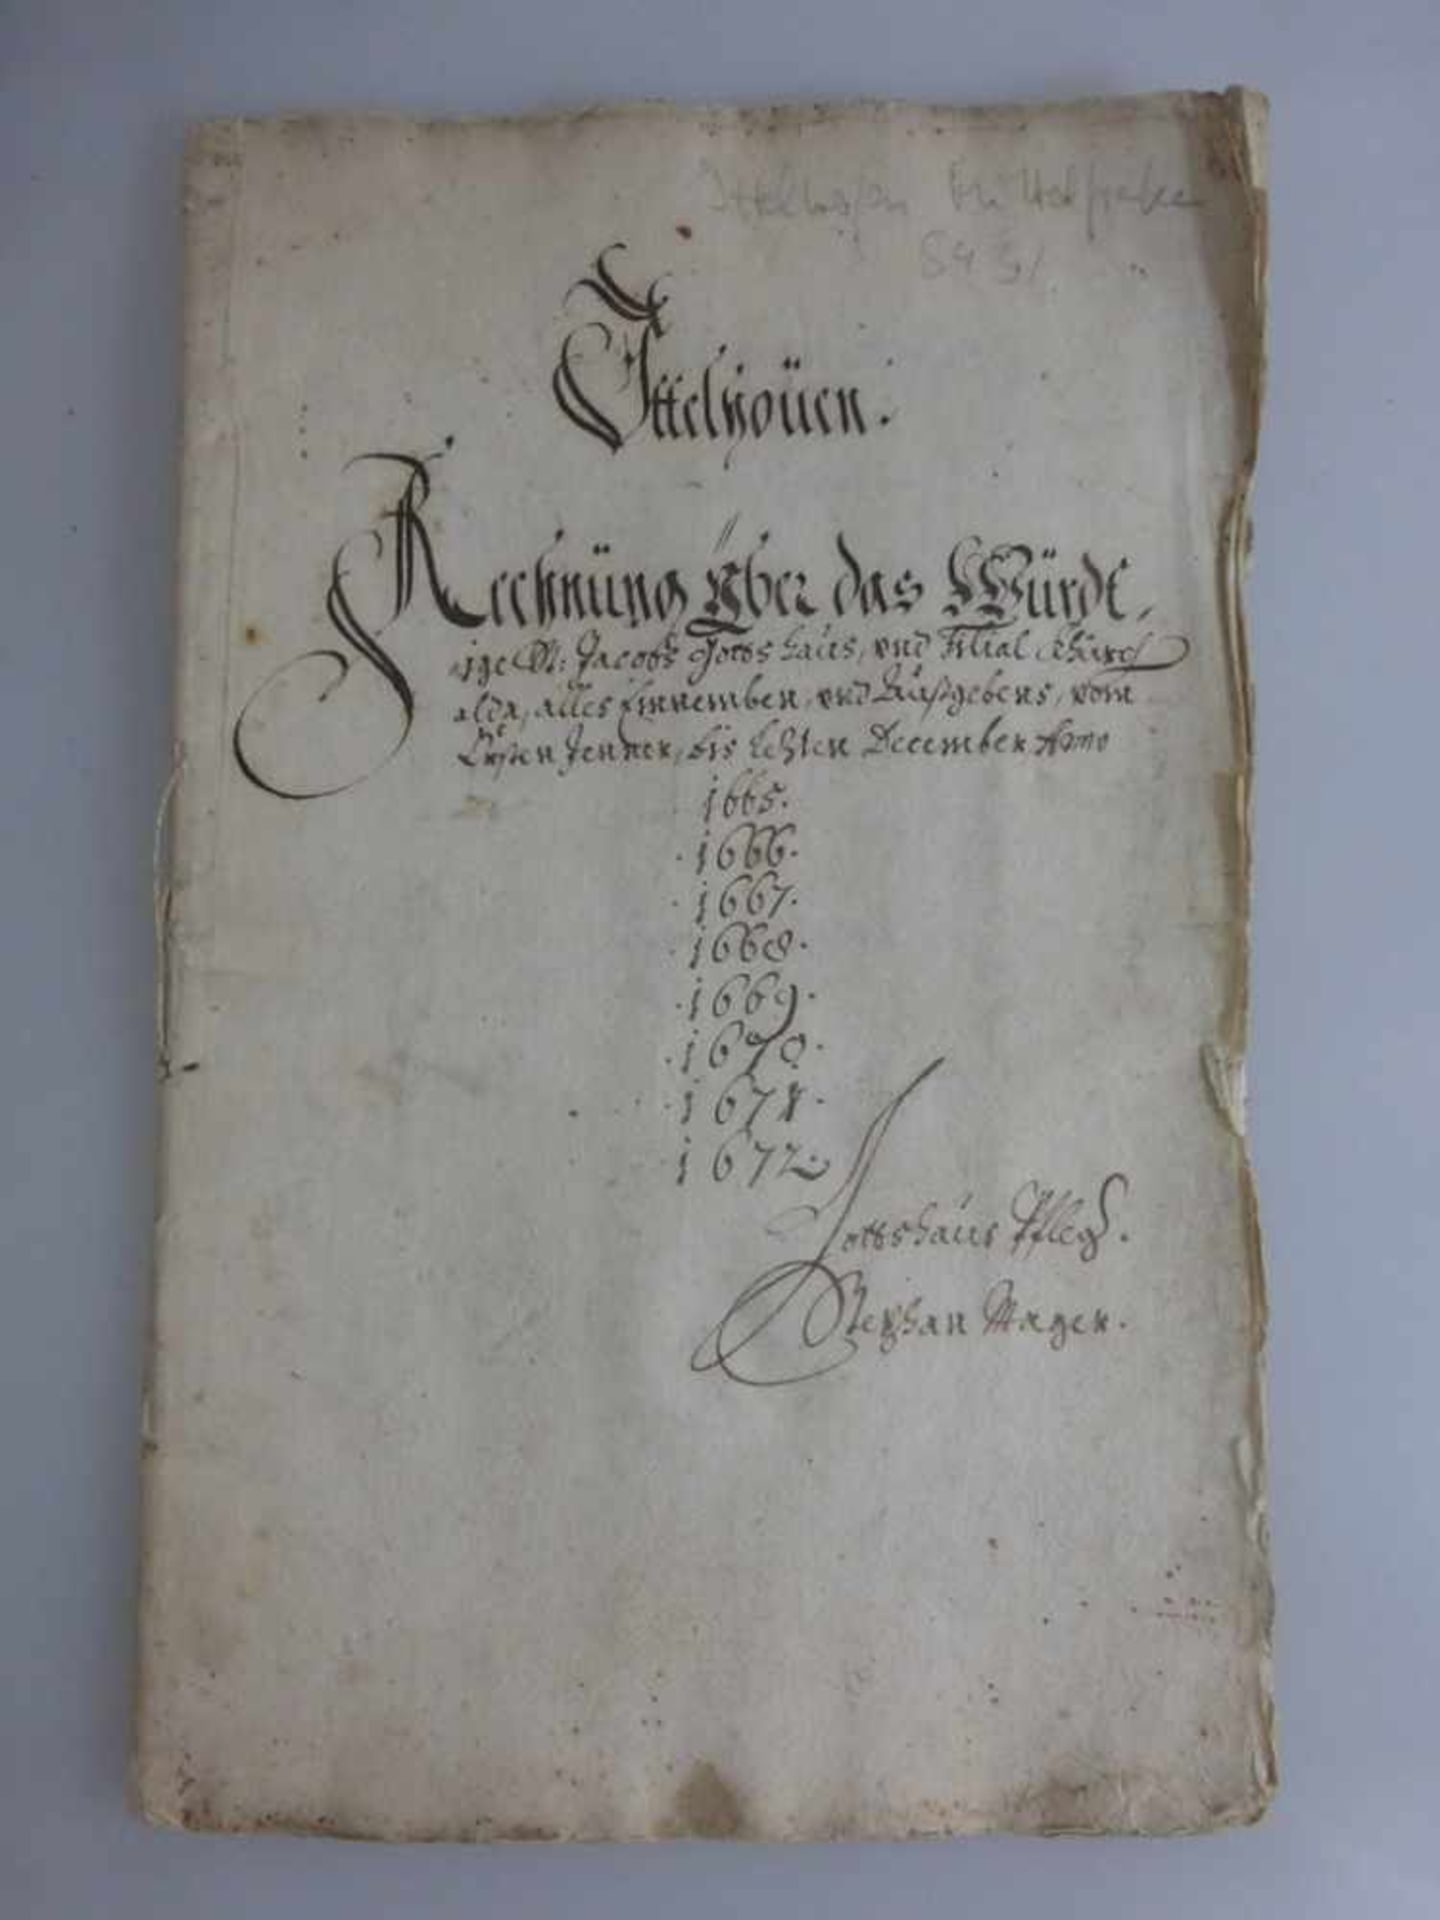 Ittelhofen
Ittelhouen.
Rechnung Yber das Würdt,
ige St: Jacobs Gottshaus, vnd Filial Khürch
alda, alles Einnemben, vnd Außgebens, vom
Ersten Jenner, bis Lezten December Anno
1665.
.1666.
.1667.
.1668.
.1669.
.1670.
.1671.
1672.
Gottshaus Pfleg.
Stephan Mayer.